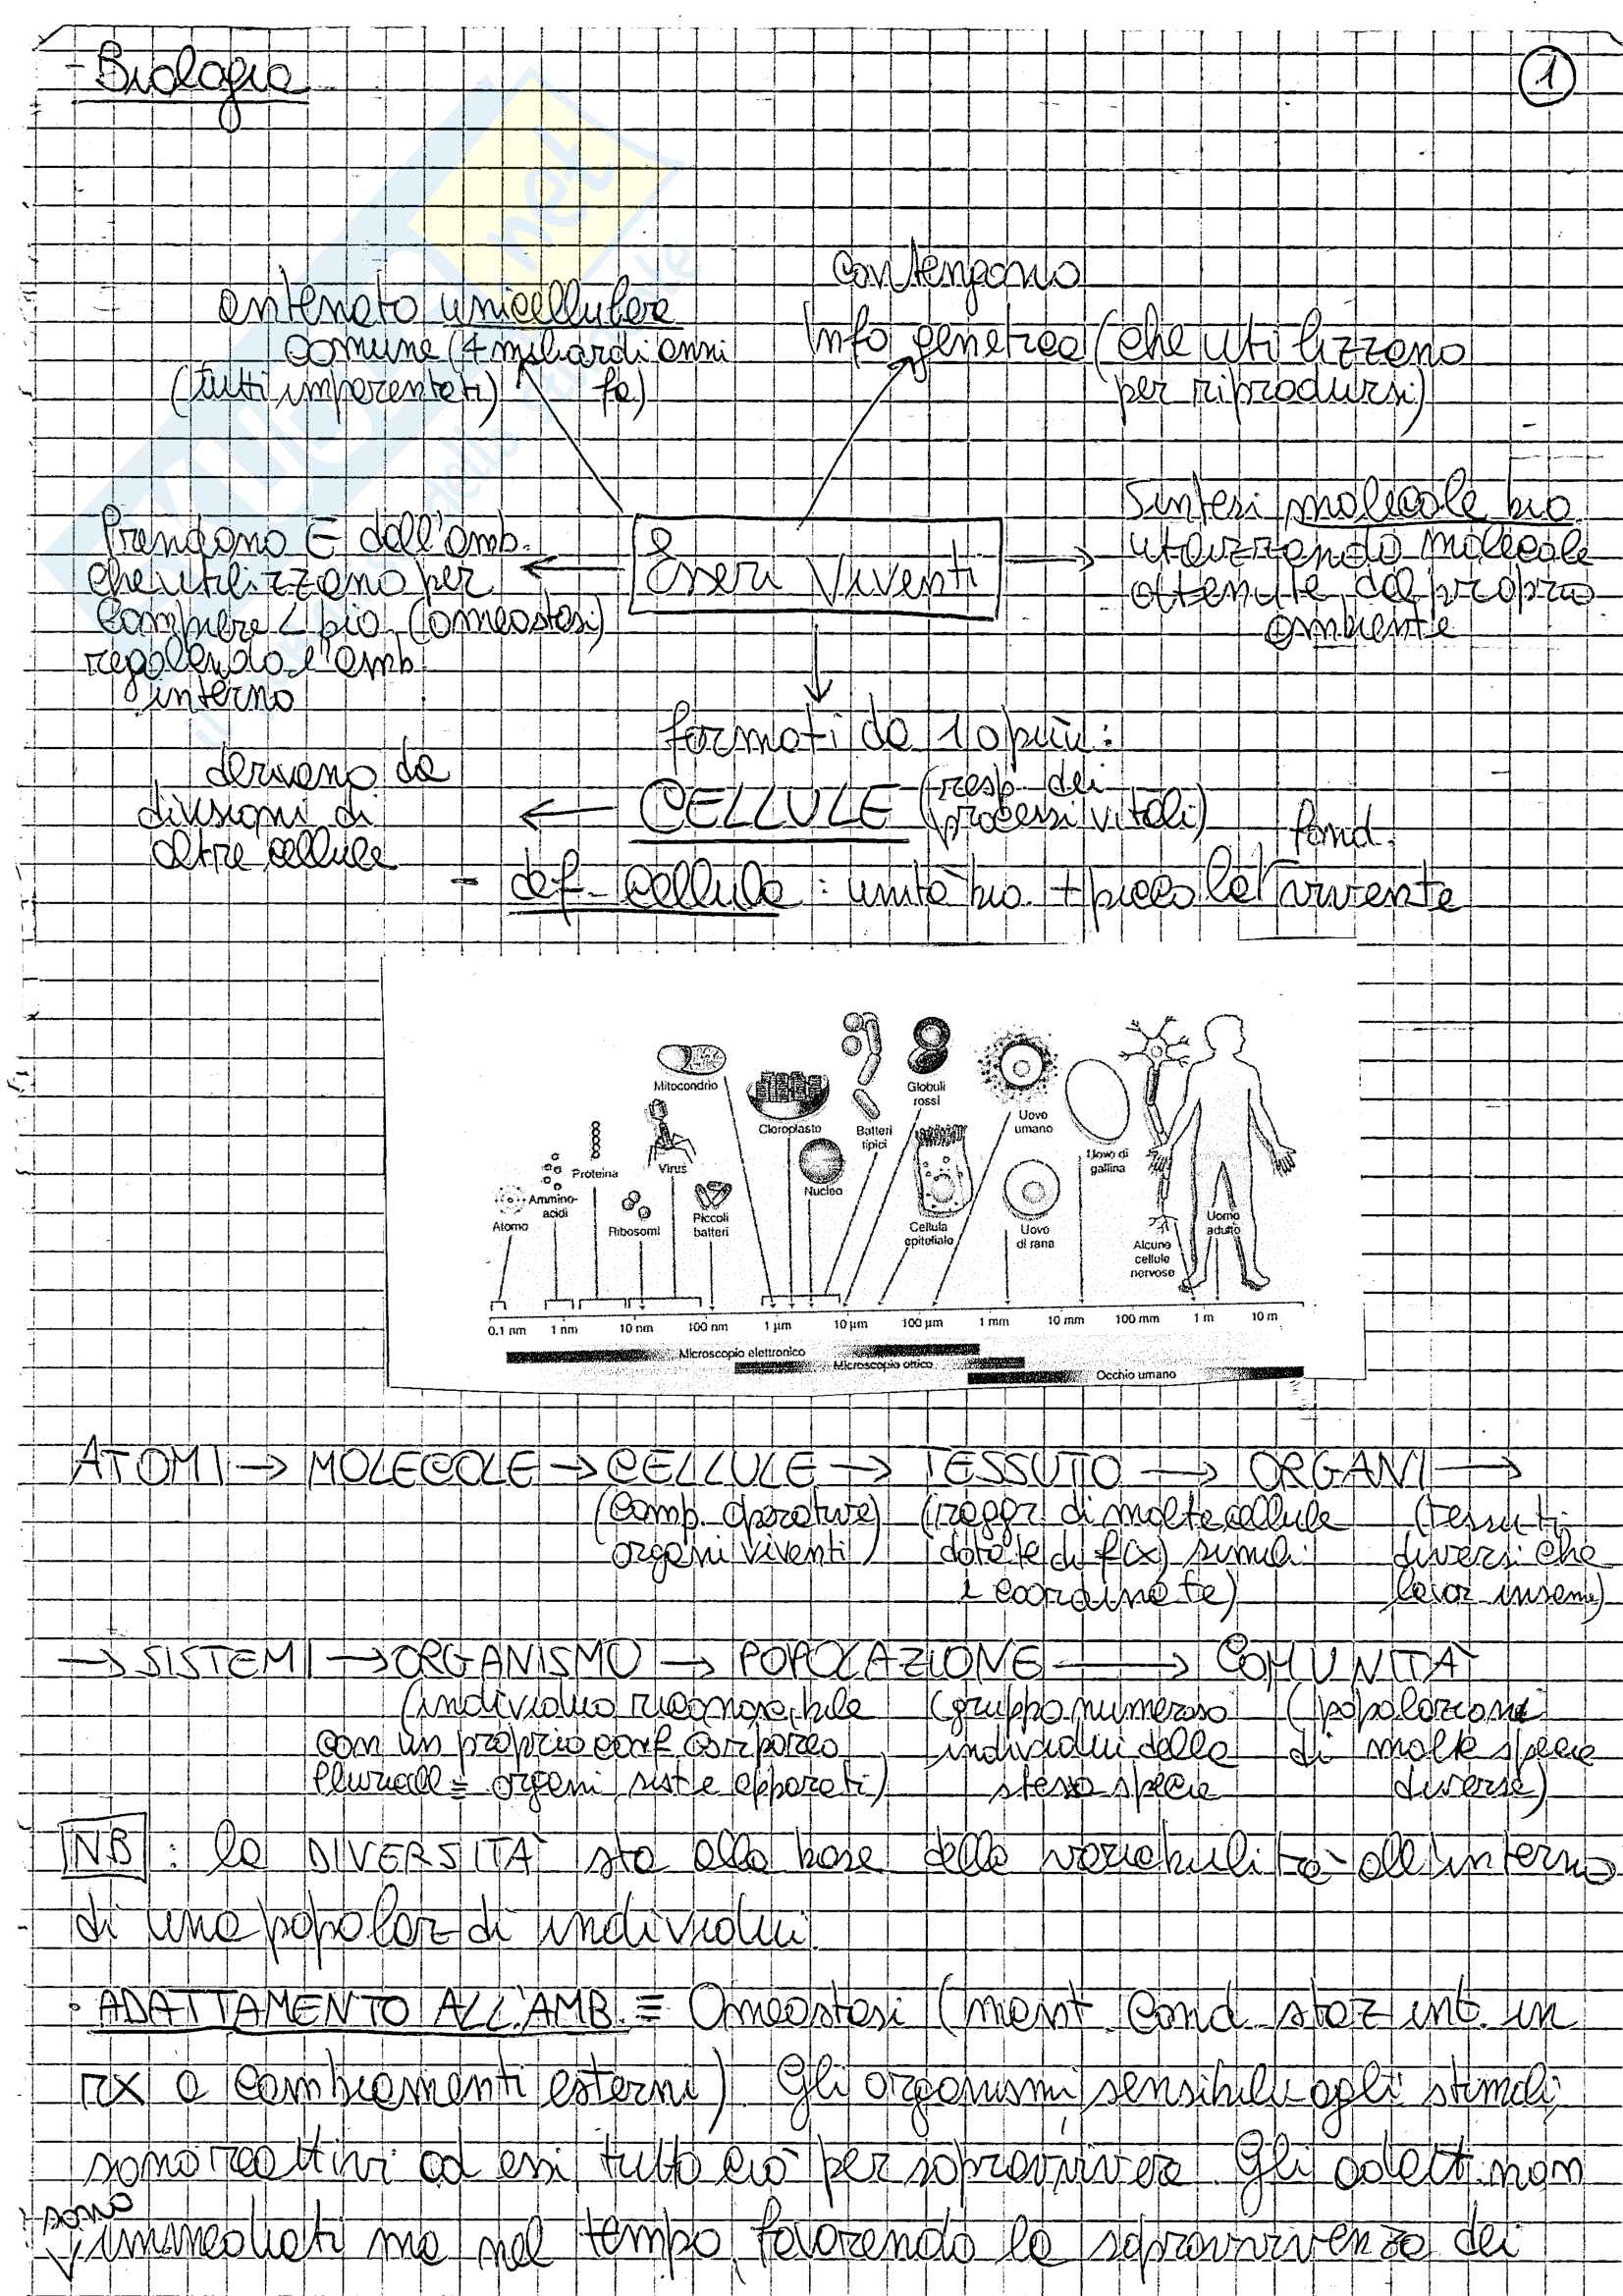 - Biologia
1
antenato unicellulare
comune (4 miliardi anni
(tutti imparentati) fa)
contengono
Info genetica (che utilizzano
per riprodursi)
Prendono E dall'amb.
che utilizzano per
compiere L bio (omeostasi)
regolando l'amb.
interno
Esseri Viventi
Sintesi molecole bio
utilizzando molecole
ottenute dal proprio
ambiente
formati da 1 o più:
derivano da
divisioni di
altre cellule
CELLULE (resp. dei
processi vitali)
- def- cellula: unità bio. + piccola fond. vivente
Mitocondrio
Cloroplasto
Batteri
tipici
Globuli
rossi
Uovo
umano
Uovo di
gallina
Atomo
Ammino-
acidi
Proteina
Ribosomi
Virus
Piccoli
batteri
Nucleo
Cellula
epiteliale
Uovo
di rana
Alcune
cellule
nervose
Uomo
adulto
0.1 nm 1 nm 10 nm 100 nm 1 µm 10 µm 100 µm 1 mm 10 mm 100 mm 1 m 10 m
Microscopio elettronico
Microscopio ottico
Occhio umano
ATOMI → MOLECOLE → CELLULE → TESSUTO → ORGANI →
(comp. operative
organi viventi)
(raggr. di molte cellule
dotate di f(x) simili
e coordinate)
(tessuti
diversi che
lavor insieme)
→ SISTEMI → ORGANISMO → POPOLAZIONE → COMUNITÀ
(individuo riconoscibile
con un proprio conf corporeo
Pluricell = organi, sist e apparati)
(gruppo numeroso
individui della
stessa specie
(popolazioni
di molte specie
diverse)
NB: la DIVERSITÀ sta alla base della variabilità all'interno
di una popolaz di individui.
· ADATTAMENTO ALL'AMB. ≡ Omeostasi (mant. cond staz int. in
rx a cambiamenti esterni). Gli organismi, sensibili agli stimoli,
sono reattivi ad essi, tutto ciò per sopravvivere. Gli adatt. non
sono
immediati ma nel tempo, favorendo la sopravvivenza dei